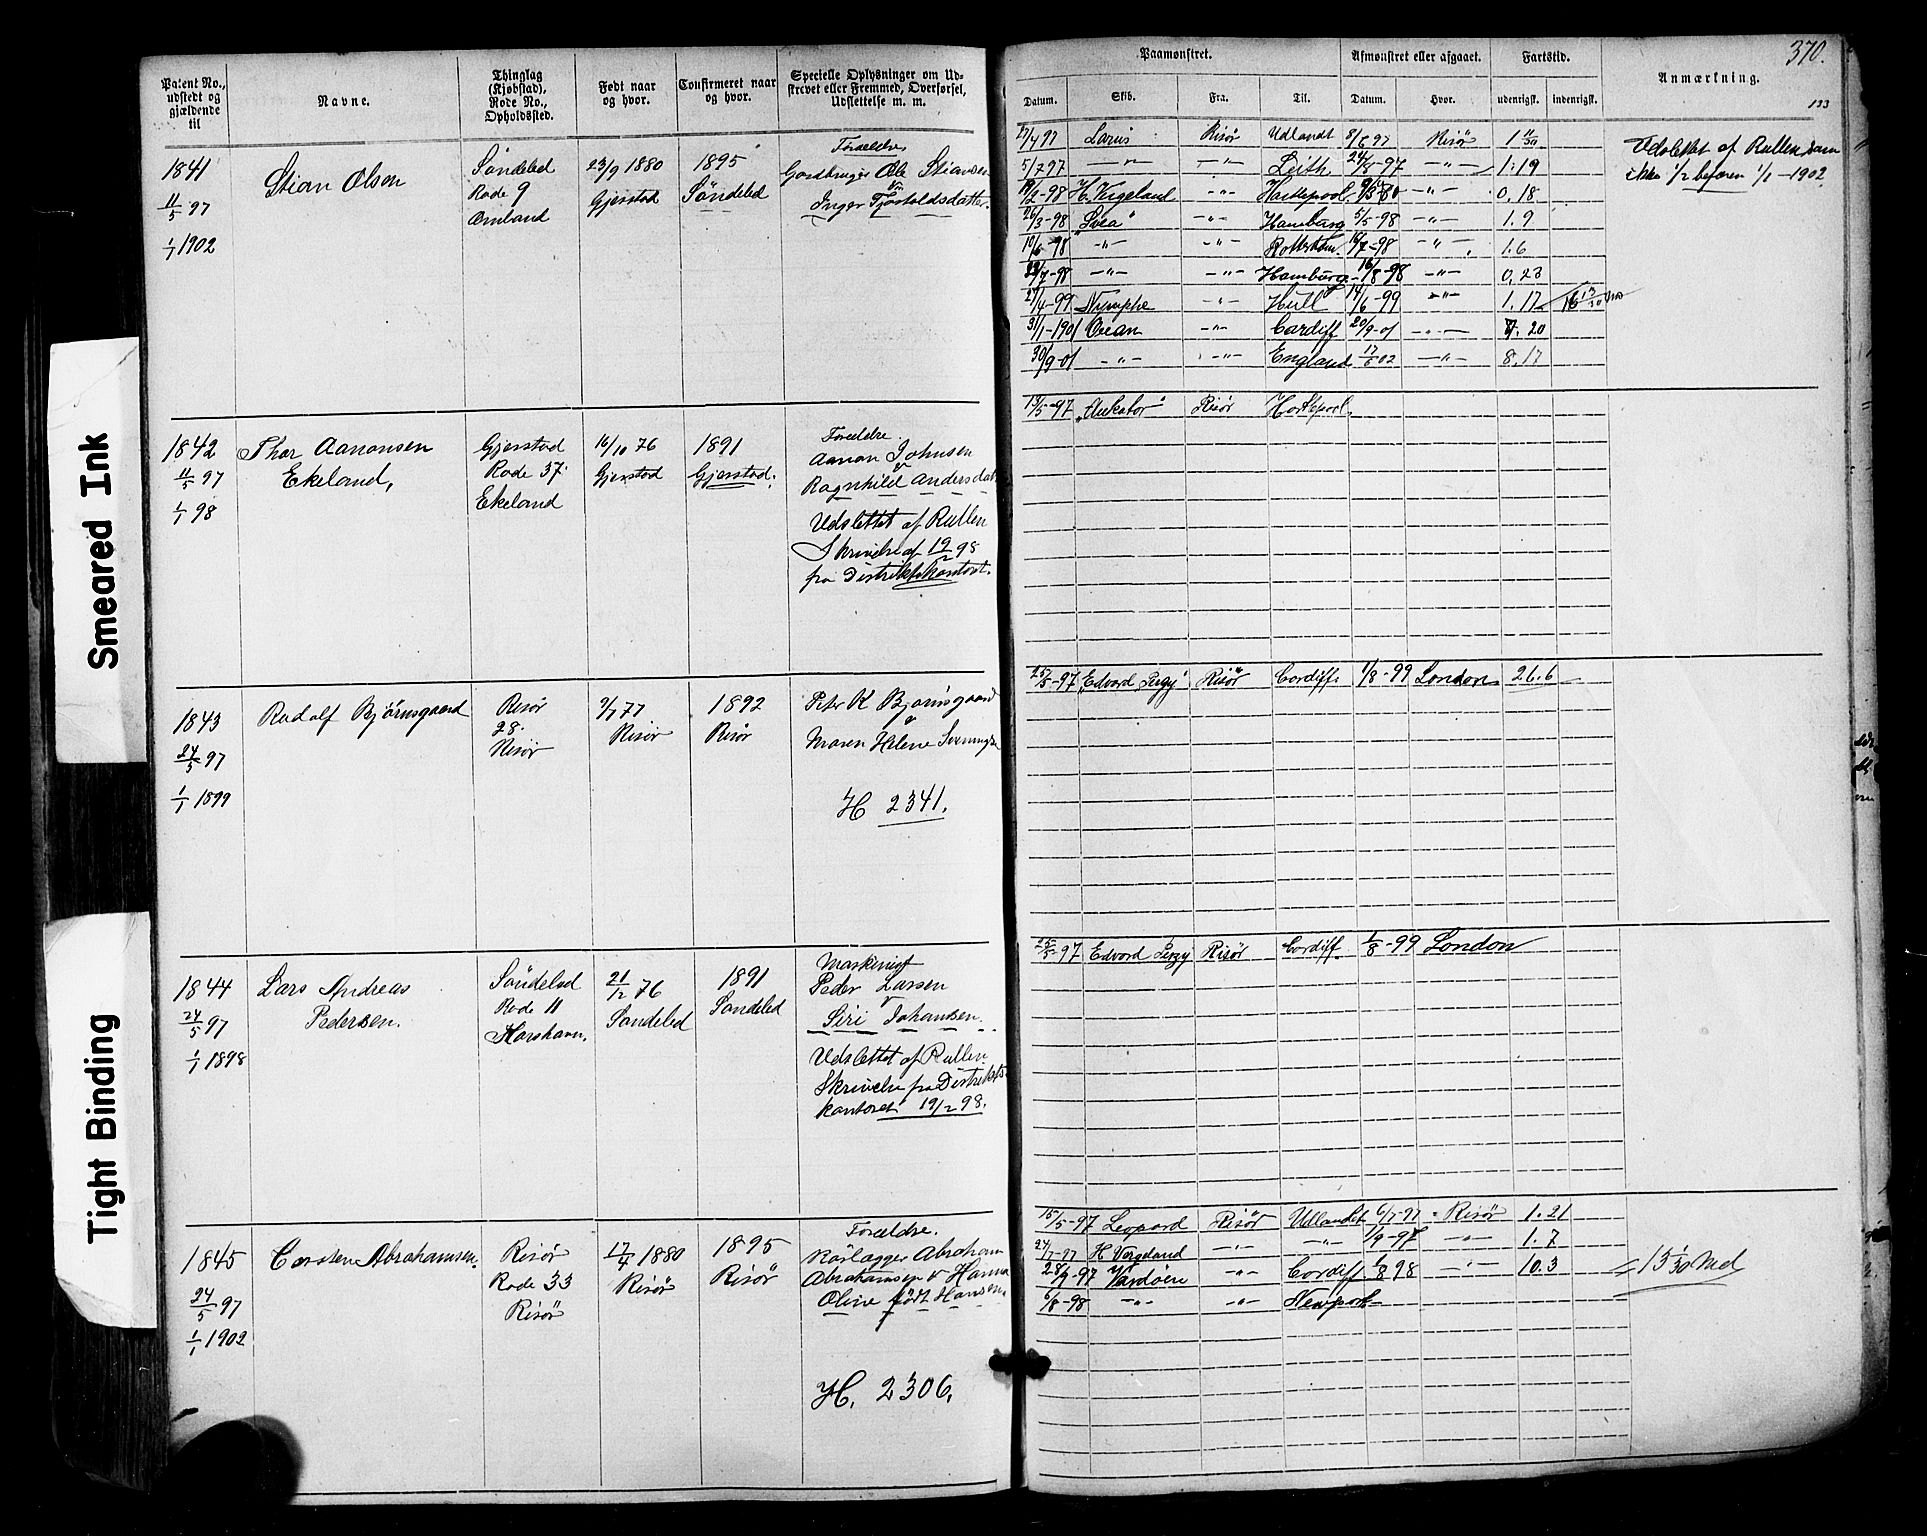 Smeared Ink
Tight Binding
Patent No., udstedt og gjældende til
Navne.
Thinglag (Kjøbstad). Rode No., Opholdssted.
Født naar og hvor.
Confirmeret naar og hvor.
Specielle Oplysninger om Udskrevet eller Fremmed, Overførsel, Udslettelse m. m.
1841
11/5 97
1/1 1902
Stian Olsen
Söndeled
Rode 9
Omland
23/9 1880
Gjerstad
1895
Söndeled
Forældre
Gardbruger Ole Stiansen
Inger Tjostoldsdatter
1842
11/5 97
1/1 98
Thor Aanonsen
Ekeland,
Gjerstad
Rode 37
Ekeland
16/10 76
Gjerstad
1891
Gjerstad.
Forældre
Aanon Johnsen
Ragnhild Andersdat
Udslettet af Rullen
Skrivelse af 19/2 98
fra Distriktskontoret.
1843
24/5 97
1/1 1899
Rudolf Bjørnsgaard
Risør
28.
Risør
9/7 77
Risör
1892
Risör
Peter K Bjørnsgaard
Maren Helene
H 2341.
1844
24/5 97
1/1 1898
Lars Andreas
Pedersen.
Söndeled
Rode 11
Korshavn.
21/12 76
Sondeled
1891
Sondeled
Maskinist
Peder Larsen
Siri Johansen.
Udslettet af Rullen
Skrivelse fra Distrikts
kontoret 19/2 98.
1845
24/5 97
1/1 1902
Carsten Abrahamsen.
Risör
Rode 33
Risör
17/4 1880
Risör
1895
Risör
Forældre.
Abraham
Abrahamsen & Hanna
Oline født Hansen
H. 2306.
370.
Paamønstret.
Afmønstret eller afgaaet.
Fartstid.
Anmærkning.
Datum.
Skib.
Fra.
Til.
Datum.
Hvor.
udenrigst.
indenrigst.
133
27/4 97 Larus Risör Udlandt 8/6 97 Risör 1 11/30
5/7 97 —"— —"— Leith 24/8-97 —"— 1.19
H. Vergeland —"— Hartlepool —"— 0.18
26/3-98 "Svea" —"— Hamburg 5/5-98 —"— 1.9
—"— —"— Rotterdam —"— 1.6
—"— —"— Hamburg 16/8-98 —"— 0.23
27/4-99 Nymphe —"— Hull 14/6-99 —"— 1.17
31/1-1901 Ocean —"— Cardiff 20/9-01 —"— 7.20
30/9-01 —"— —"— England 17/6 02 —"— 8.17
Udslettet af Rullen som
ikke 1/2 befaren 1/1-1902.
"Aukator" Risør Hartlepool
25/5-97 "Edvard Percy" Risör Cardiff 1/8-99 London 26.6
25/5-97 Edvard Percy Risør Cardiff. 1/8-99 London
15/5-97 Leopard Risör Udlandet 6/7-97 Risör 1.21
24/7-97 H Vergeland —"— —"— 1/9-97 —"— 1.7
28/9-97 Vardöen —"— Cardiff 1/8 98 —"— 10.3
6/8-98 —"— —"— Newport
= 13 1/30 Md